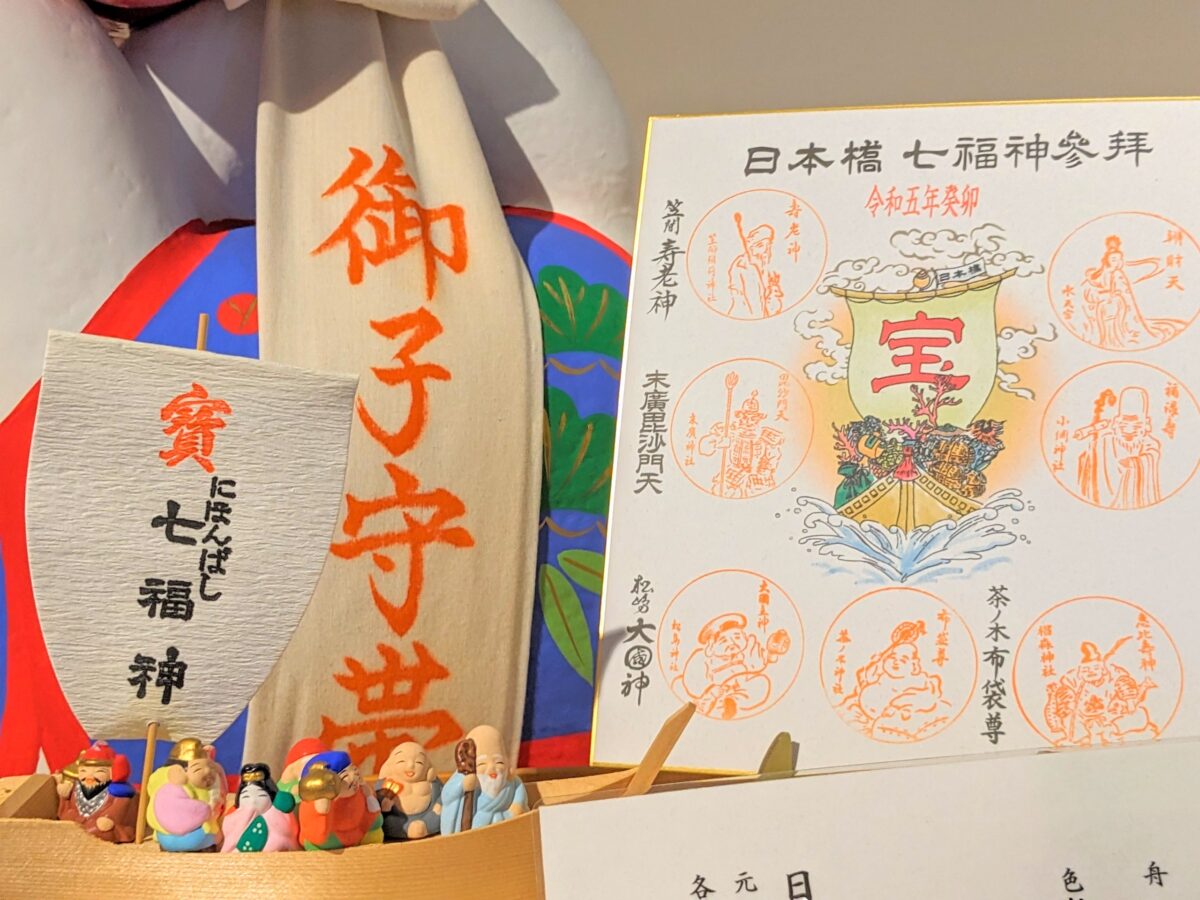 御子守帯
寶
にほんばし
七福神
日本橋 七福神參拝
令和五年癸卯
日本橋
宝
笠間 寿老神
寿老神
笠間稲荷神社
末廣毘沙門天
毘沙門天
末廣神社
松島 大國神
大國主神
松島神社
布袋尊
茶ノ木神社
茶ノ木布袋尊
恵比寿神
椙森神社
福禄寿
小網神社
辨財天
水天宮
各
元
日
色
舟